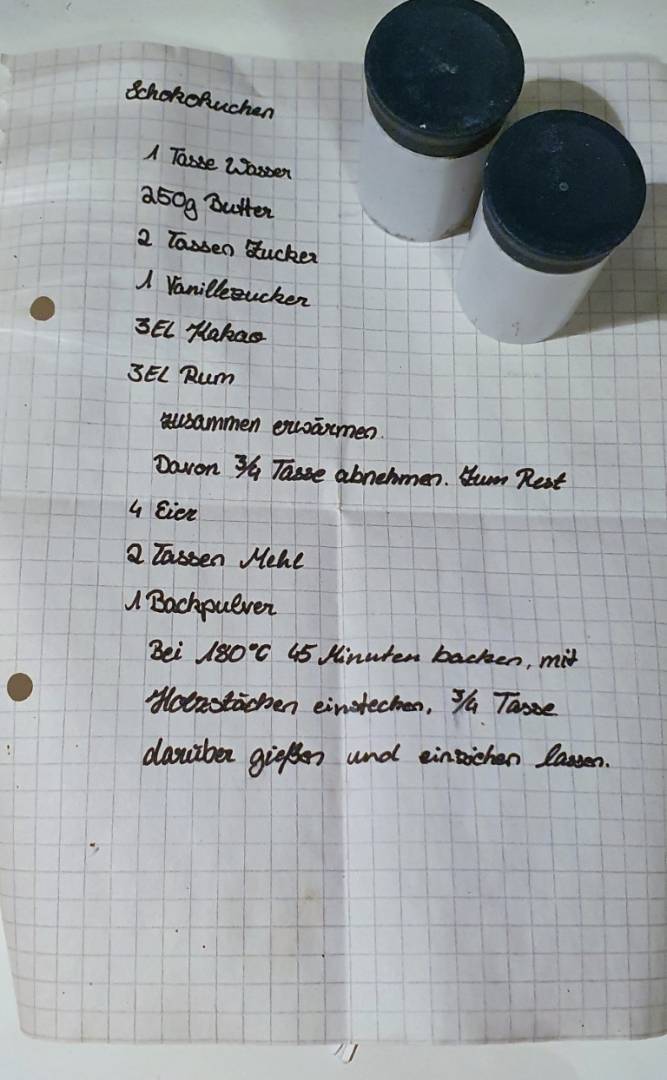 Schokokuchen
1 Tasse Wasser
250g Butter
2 Tassen Zucker
1 Vanillezucker
3EL Kakao
3EL Rum
zusammen erwärmen.
Davon 3/4 Tasse abnehmen. Zum Rest
4 Eier
2 Tassen Mehl
1 Backpulver
Bei 180°C 45 Minuten backen, mit
Holzstäcken einstechen, 3/4 Tasse
darüber gießen und einziehen lassen.